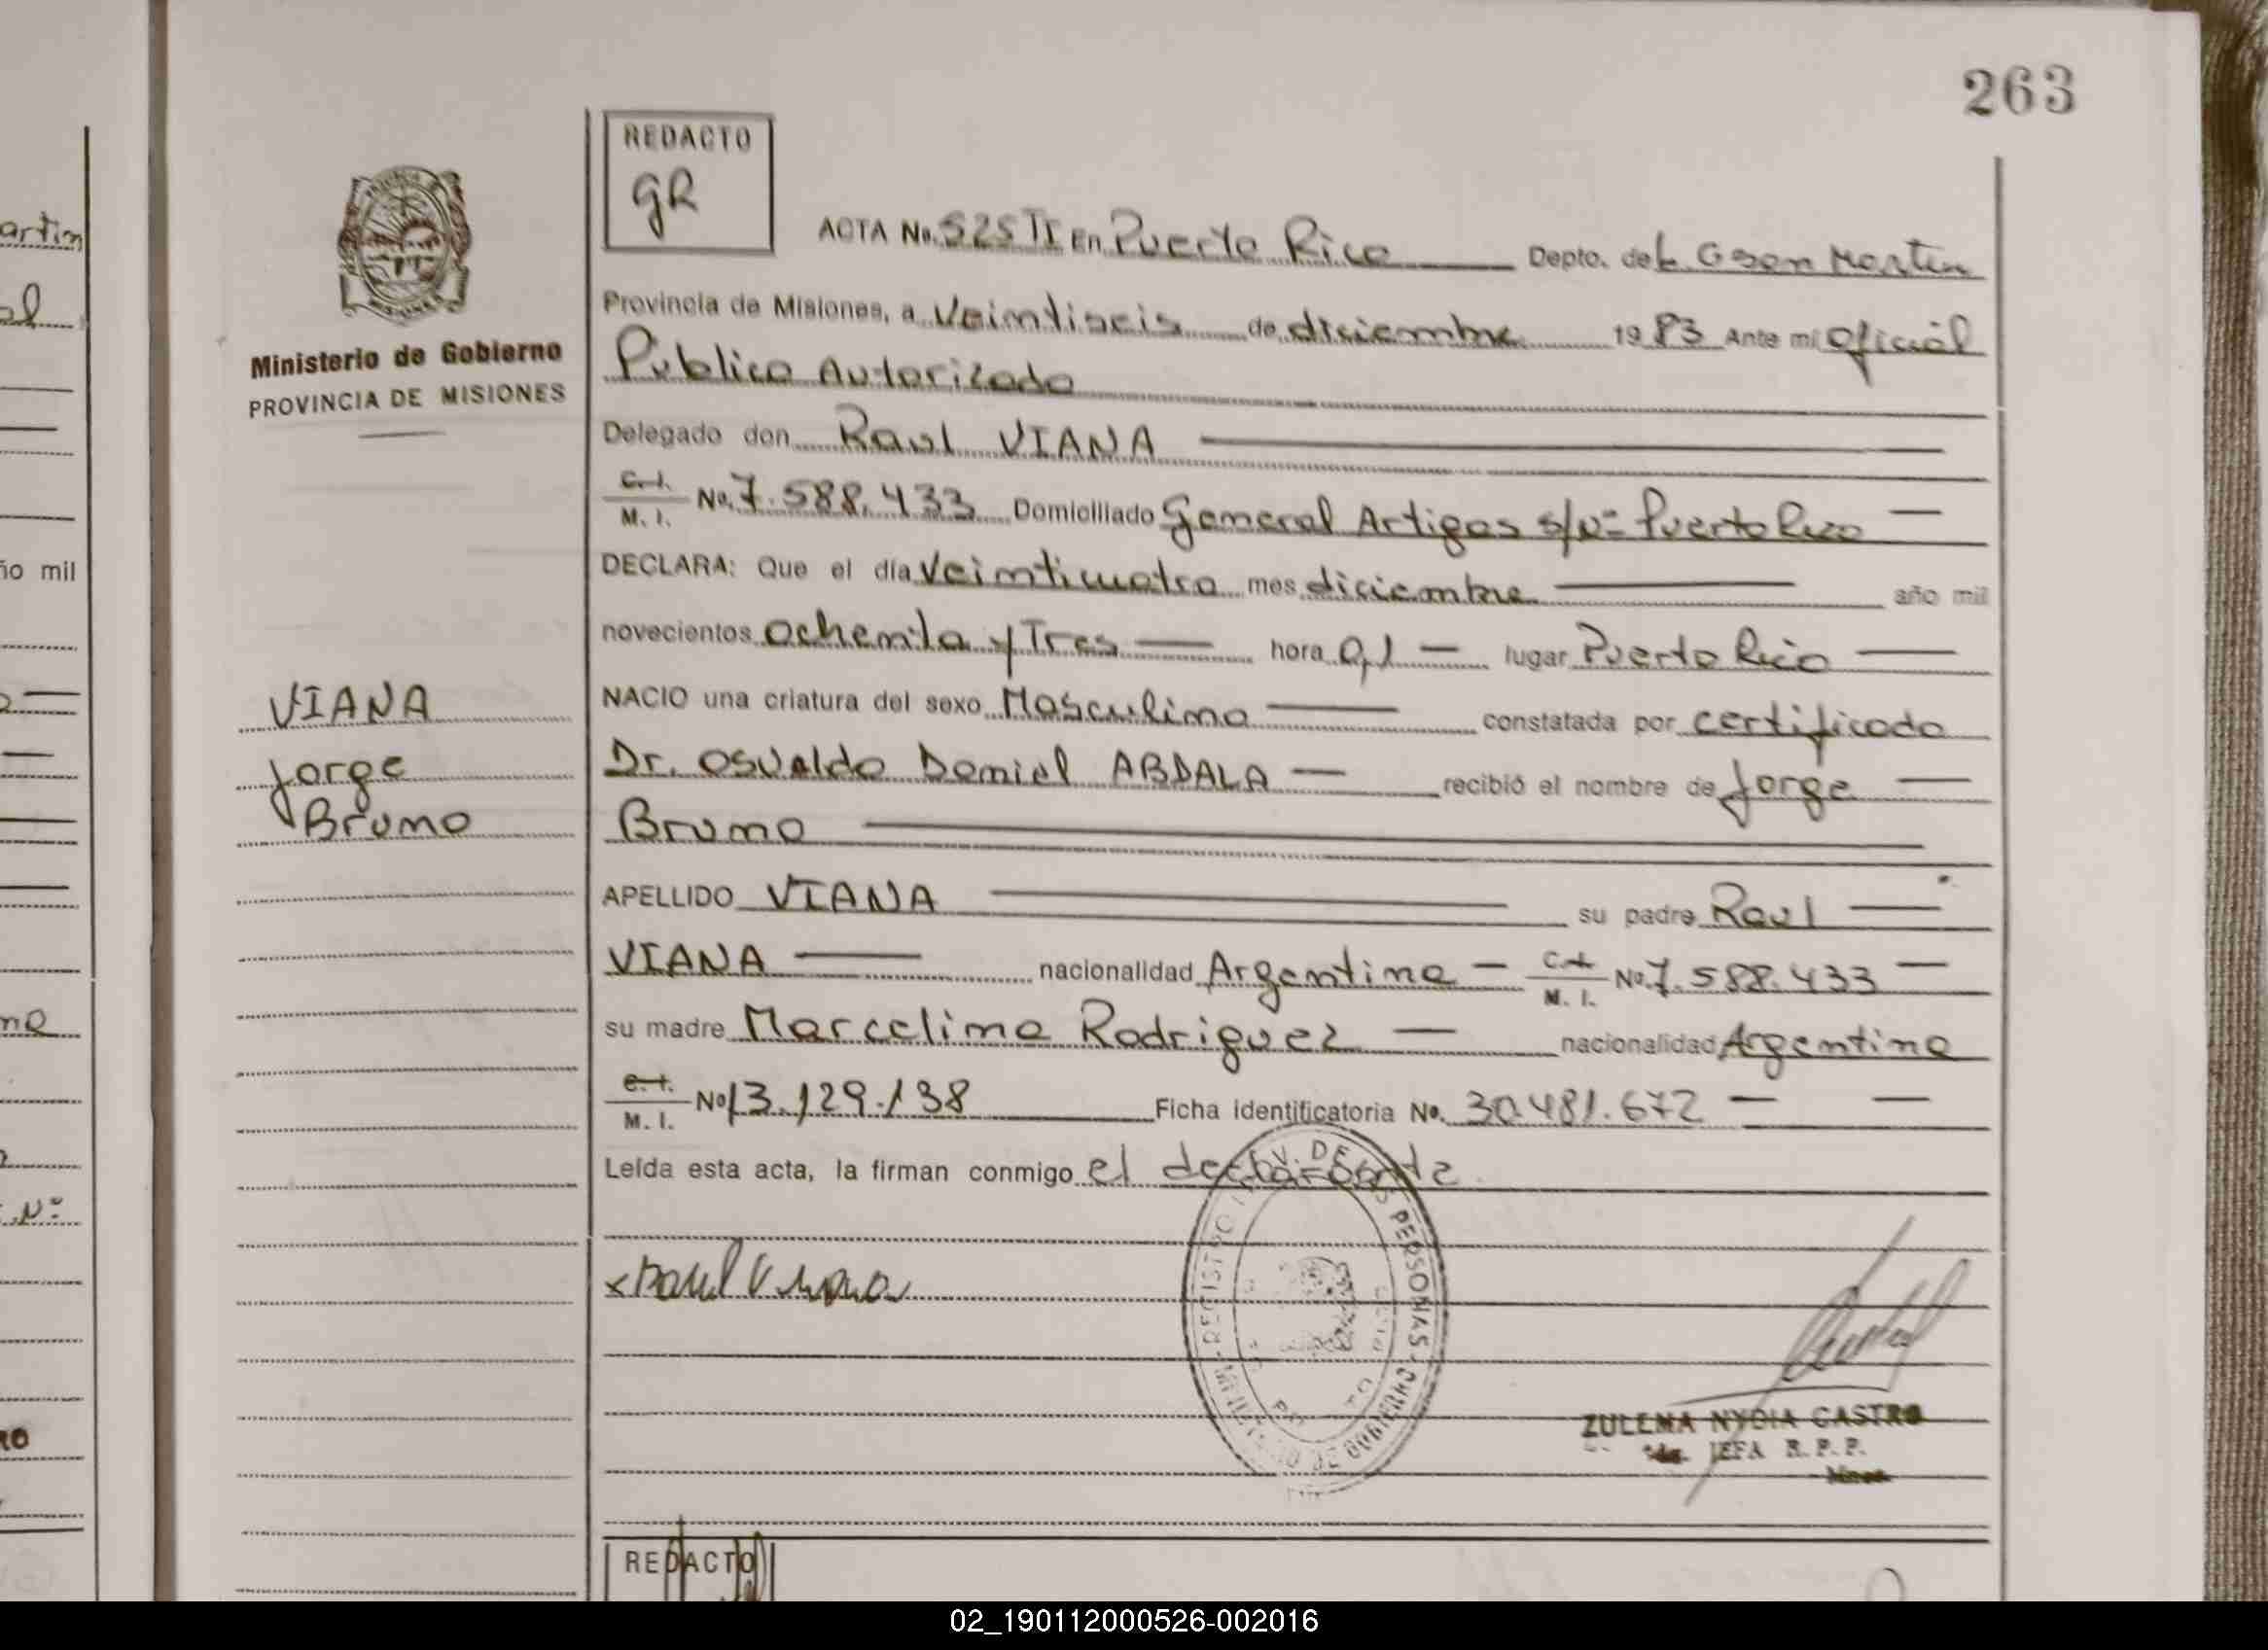 263
REDACTO
gR
ACTA No. 525 TI En Puerto Rico Depto. de L. G San Martin
Provincia de Misiones, a Veintiseis de diciembre 1983 Ante mi Oficial
Publico Autorizado
Delegado don Raul VIANA
C.I. M.I. No. 7.588.433 Domiciliado General Artigas s/nº Puerto Rico
DECLARA: Que el día Veinticuatro mes diciembre año mil
novecientos Ochenta y Tres hora 0,1 lugar Puerto Rico
NACIO una criatura del sexo Masculino constatada por certificado
Dr. Osvaldo Daniel ABDALA recibió el nombre de Jorge
Bruno
APELLIDO VIANA su padre Raul
VIANA nacionalidad Argentina C.I. M.I. No 7.588.433
su madre Marcelina Rodriguez nacionalidad Argentina
C.I. M.I. No 13.129.138 Ficha identificatoria No. 30.481.672
Leída esta acta, la firman conmigo el declarante
x Raul Viana
PERSONAS
ZULEMA NYDIA CASTRO
JEFA R. P. P.
REDACTO
Ministerio de Gobierno
PROVINCIA DE MISIONES
VIANA
Jorge
Bruno
artin
al
ño mil
na
Nº
RO
02_190112000526-002016